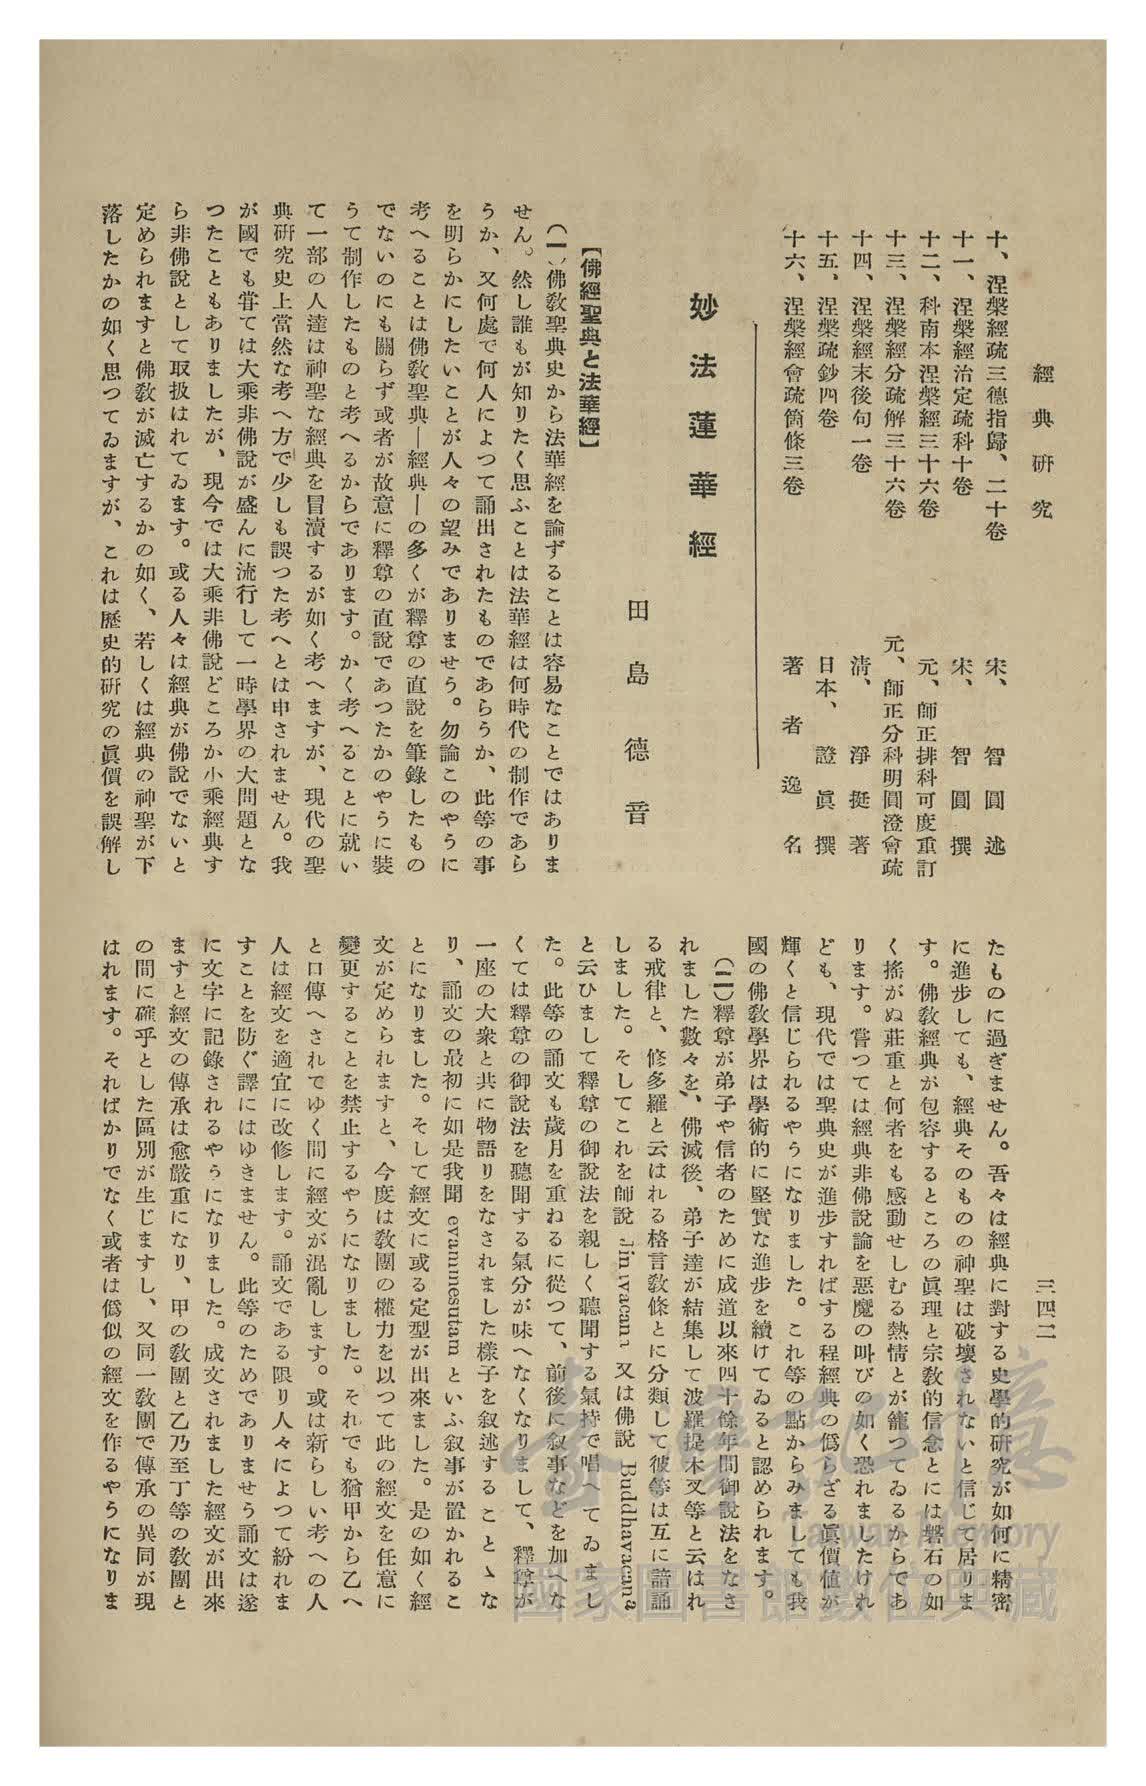 經典研究
三四二
十、涅槃經疏三德指歸、二十卷　宋、智圓述
十一、涅槃經治定疏科十卷　宋、智圓撰
十二、科南本涅槃經三十六卷　元、師正排科可度重訂
十三、涅槃經分疏解三十六卷　元、師正分科明圓澄會疏
十四、涅槃經末後句一卷　淸、淨挺著
十五、涅槃疏鈔四卷　日本、證眞撰
十六、涅槃經會疏箇條三卷　著者逸名
妙法蓮華經
田島德音
【佛經聖典と法華經】
(一)佛敎聖典史から法華經を論ずることは容易なことではありま
せん。然し誰もが知りたく思ふことは法華經は何時代の制作であら
うか、又何處で何人によつて誦出されたものであらうか、此等の事
を明らかにしたいことが人々の望みでありませう。勿論このやうに
考へることは佛敎聖典―經典―の多くが釋尊の直說を筆錄したもの
でないのにも關らず或者が故意に釋尊の直說であつたかのやうに裝
うて制作したものと考へるからであります。かく考へることに就い
て一部の人達は神聖な經典を冒瀆するが如く考へますが、現代の聖
典硏究史上當然な考へ方で少しも誤つた考へとは申されません。我
が國でも甞ては大乘非佛說が盛んに流行して一時學界の大問題とな
つたこともありましたが、現今では大乘非佛說どころか小乘經典す
ら非佛說として取扱はれてゐます。或る人々は經典が佛說でないと
定められますと佛敎が滅亡するかの如く、若しくは經典の神聖が下
落したかの如く思つてゐますが、これは歷史的硏究の眞價を誤解し
たものに過ぎません。吾々は經典に對する史學的硏究が如何に精密
に進步しても、經典そのものの神聖は破壞されないと信じて居りま
す。佛敎經典が包容するところの眞理と宗敎的信念とには磐石の如
く搖がぬ莊重と何者をも感動せしむる熱情とが籠つてゐるからであ
ります。嘗つては經典非佛說論を惡魔の叫びの如く恐れましたけれ
ども、現代では聖典史が進步すればする程經典の僞らざる眞價値が
輝くと信じられるやうになりました。これ等の點からみましても我
國の佛敎學界は學術的に堅實な進步を續けてゐると認められます。
(二)釋尊が弟子や信者のために成道以來四十餘年間御說法をなさ
れました數々を、佛滅後、弟子達が結集して波羅提木叉等と云はれ
る戒律と、修多羅と云はれる格言敎條とに分類して彼等は互に諳誦
しました。そしてこれを師說 Jinavacana 又は佛說 Buddhavacana
と云ひまして釋尊の御說法を親しく聽聞する氣持で唱へてゐまし
た。此等の誦文も歲月を重ねるに從つて、前後に叙事などを加へな
くては釋尊の御說法を聽聞する氣分が味へなくなりまして、釋尊が
一座の大衆と共に物語りをなされました樣子を叙述することゝな
り、誦文の最初に如是我聞 evammesutam といふ叙事が置かれるこ
とになりました。そして經文に或る定型が出來ました。是の如く經
文が定められますと、今度は敎團の權力を以つて此の經文を任意に
變更することを禁止するやうになりました。それでも猶甲から乙へ
と口傳へされてゆく間に經文が混亂します。或は新らしい考への人
人は經文を適宜に改修します。誦文である限り人々によつて紛れま
すことを防ぐ譯にはゆきません。此等のためでありませう誦文は遂
に文字に記錄されるやうになりました。成文されました經文が出來
ますと經文の傳承は愈嚴重になり、甲の敎團と乙乃至丁等の敎團と
の間に確乎とした區別が生じますし、又同一敎團で傳承の異同が現
はれます。そればかりでなく或者は僞似の經文を作るやうになりま
臺灣記憶
Taiwan Memory
國家圖書館數位典藏